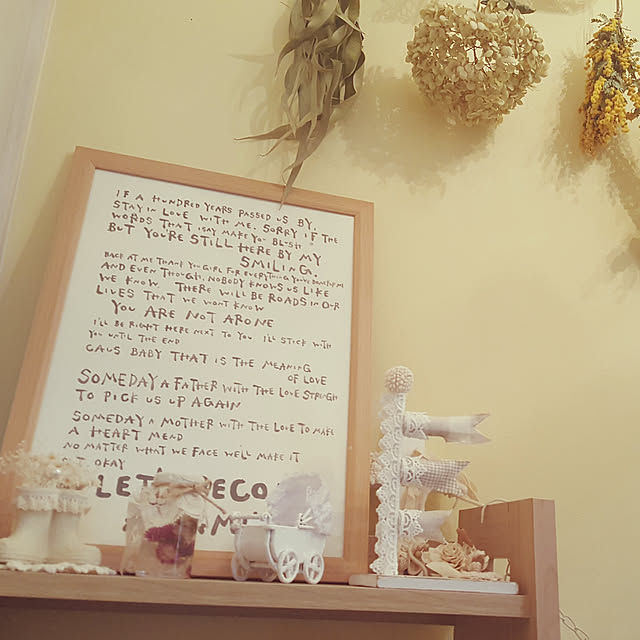 IF A HUNDRED YEARS PASSED US BY,
STAY IN LOVE WITH ME. SORRY IF THE
WORDS THAT I SAY MAKE YOU BLUSH
BUT YOU'RE STILL HERE BY MY
SMILING.
BACK AT ME THANK YOU GIRL FOR EVERYTHING YOU'VE
AND EVEN THOUGH NOBODY KNOWS US LIKE
WE KNOW THERE WILL BE ROADS IN OUR
LIVES THAT WE WON'T KNOW
YOU ARE NOT ARONE
I'LL BE RIGHT HERE NEXT TO YOU I'LL STICK WITH
YOU UNTIL THE END
CAUS BABY THAT IS THE MEANING
OF LOVE
SOMEDAY A FATHER WITH THE LOVE STRENGH
TO PICK US UP AGAIN
SOMEDAY A MOTHER WITH THE LOVE TO MAKE
A HEART MEND
NO MATTER WHAT WE FACE WE'LL MAKE IT
OKAY